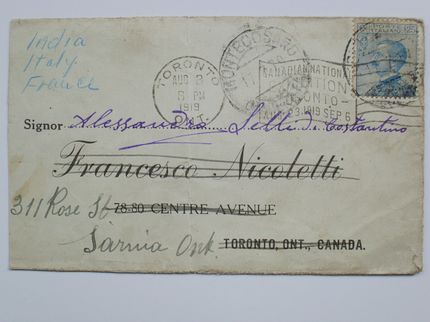 India
Italy
France
TORONTO
AUG 8
6 PM
1919
ONT.
MONTECOSARO
CANADIAN NATIONAL
TORONTO
AUG. 23. 1919 SEP 6
Signor Alessandro Selli di Costantino
Francesco Nicoletti
311 Rose St 78-80 CENTRE AVENUE
Sarnia Ont. TORONTO, ONT., CANADA.